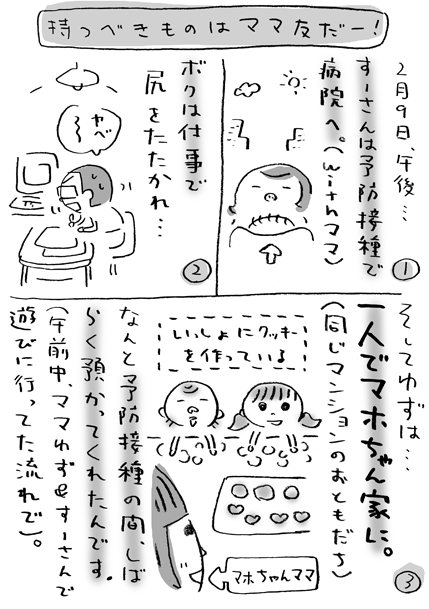 持つべきものはママ友だー!
2月9日、午後…
すーさんは予防接種で
病院へ。(withママ)
①
ボクは仕事で
尻をたたかれ…
ヤベ〜
②
そしてゆずは…
一人でマホちゃん家に。
(同じマンションのおともだち)
いっしょにクッキー
を作っている
なんと予防接種の間、しば
らく預かってくれたんです。
(午前中、ママゆず&すーさんで
遊びに行ってた流れで)。
マホちゃんママ
③